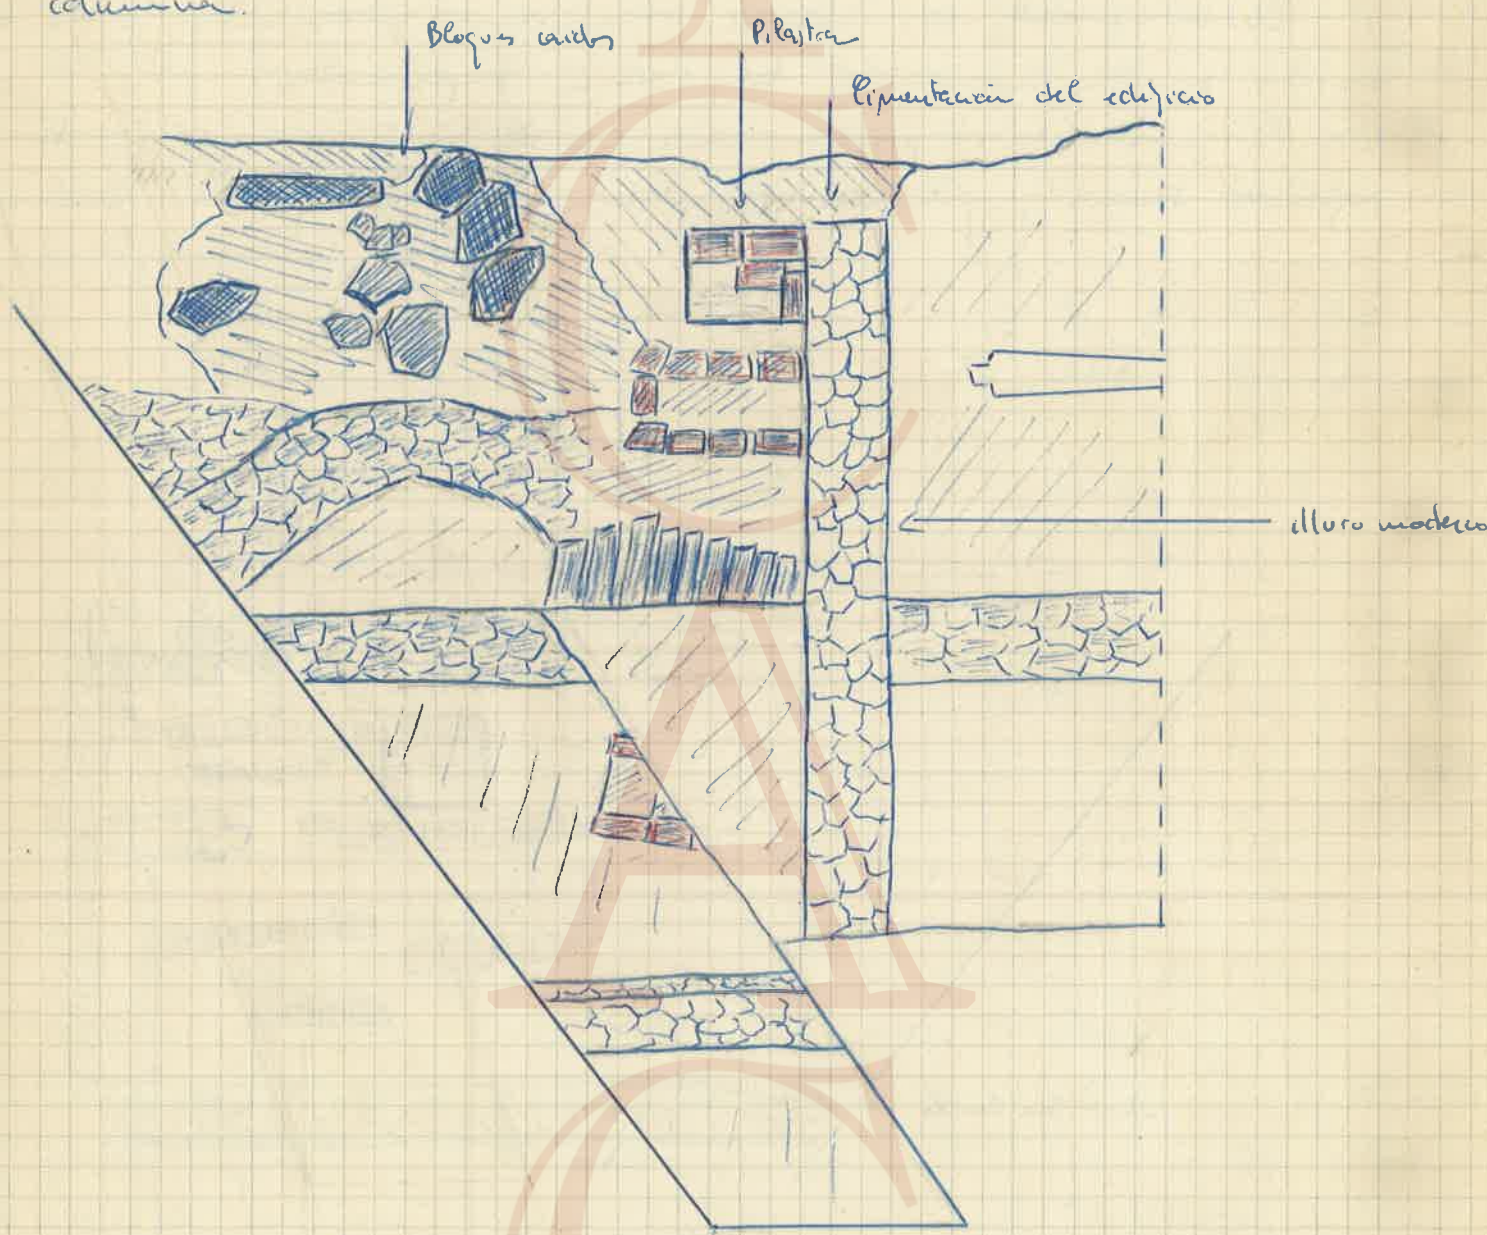 columna.
Bloques caidos
Pilastra
Cimentación del edificio
Muro moderno